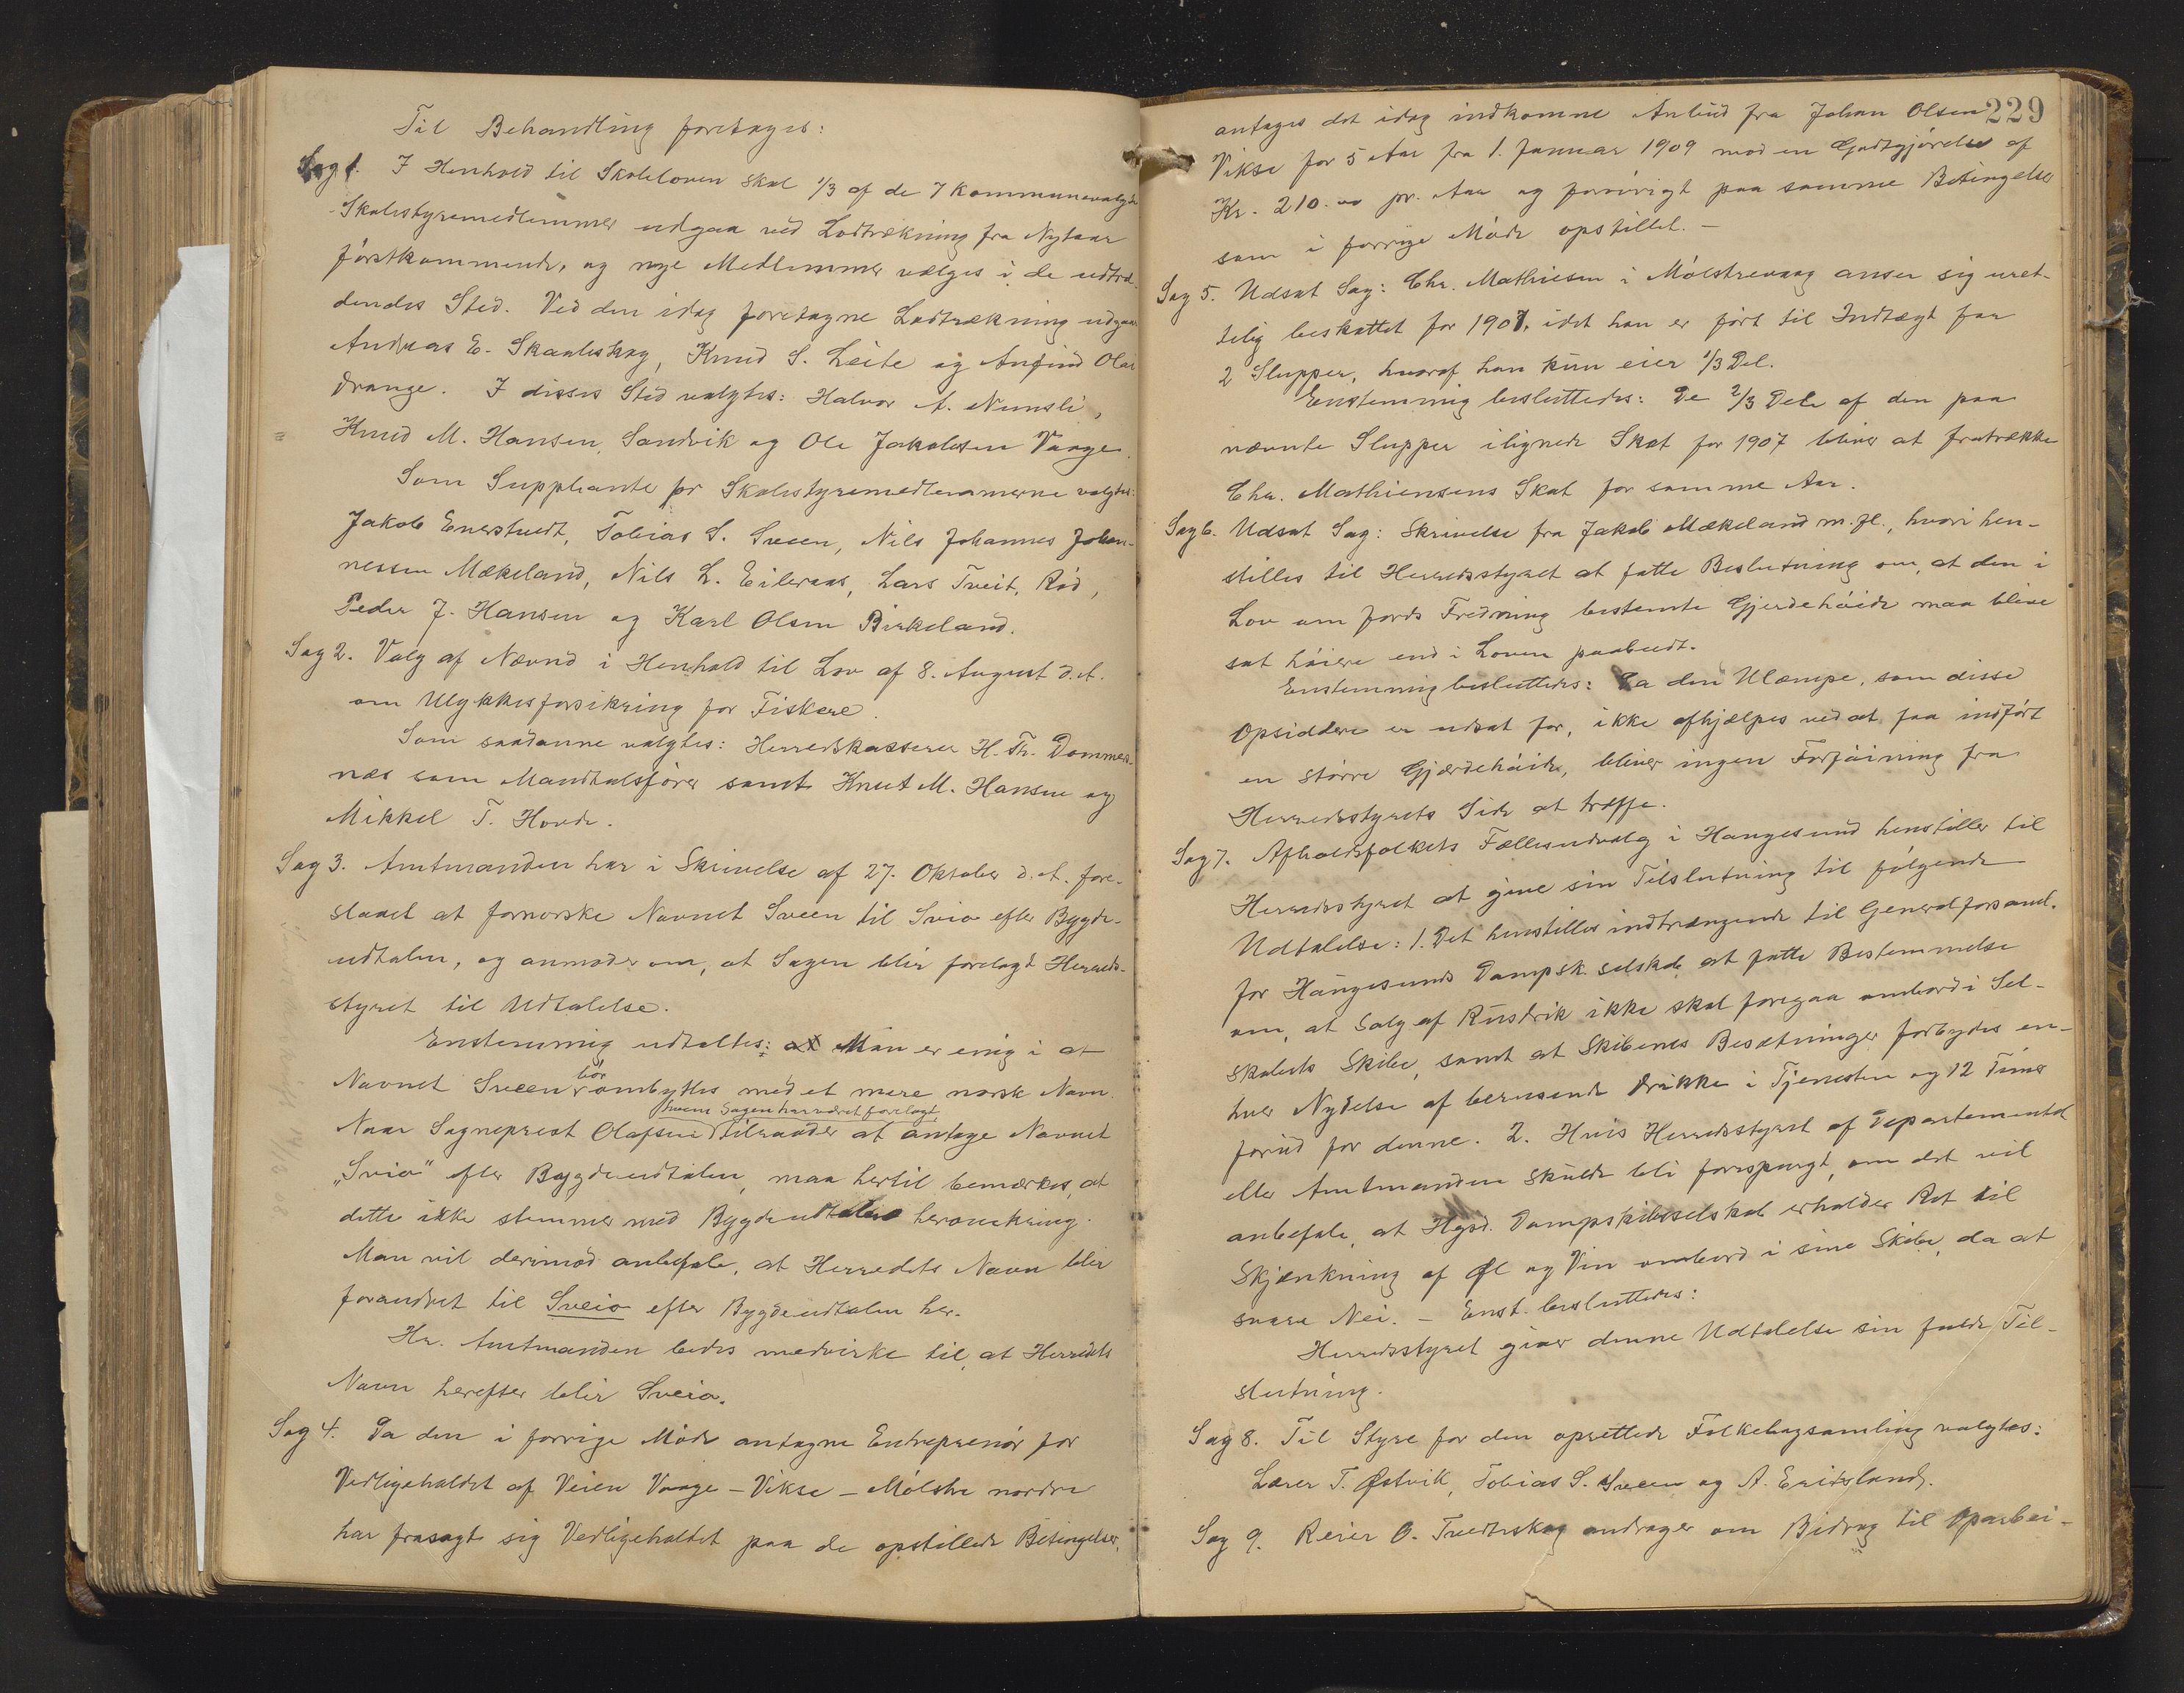 Til Behandling foretages:
Sag 1. I Henhold til Skoleloven skal 1/3 af de 7 kommunevalgte
Skolestyremedlemmer udgaa ved Lodtrækning fra Nytaar
förstkommende, og nye Medlemmer vælges i de udtræ-
dendes Sted. Ved den idag foretagne Lodtrækning udgaar
Andreas E. Skaaleskog, Knud S. Leite og Anfind Olai
Drange. I disses Sted valgtes: Halvor A. Nemsli,
Knud M. Hansen, Sandvik og Ole Jakobsen Vaage.
Som Suppleante for Skolestyremedlemmerne valgtes:
Jakob Enerstvedt, Tobias S. Sveen, Nils Johannes Johan-
nessen Mækeland, Nils L. Eileraas, Lars Tveit, Rød,
Peder J. Hansen og Karl Olsen Birkeland.
Sag 2. Valg af Nævnd i Henhold til Lov af 8. August d. A.
om Ulykkesforsikring for Fiskere.
Som saadanne valgtes: Herredskasserer H. Th. Dommers-
næs som Mandtalsfører samt Knut M. Hansen og
Mikkel T. Hovde.
Sag 3. Amtmanden har i Skrivelse af 27. Oktober d. A. fore-
slaaet at fornorske Navnet Sveen til Svio efter Bygde-
udtalen, og anmoder om, at Sagen blir forelagt Herreds-
styret til Udtalelse.
Enstemmig udtaltes: at Man er enig i at
bör
Navnet Sveen ombyttes med et mere norsk Navn.
hvem Sagen har været forelagt
Naar Sogneprest Olafsen tilraader at antage Navnet
„Svio" efter Bygdeudtalen, maa hertil bemærkes, at
dette ikke stemmer med Bygdeudtalen heromkring.
Man vil derimod anbefale, at Herredets Navn blir
forandret til Sveio efter Bygdeudtalen her.
Hr. Amtmanden bedes medvirke til, at Herredets
Navn herefter blir Sveio.
Sag 4. Da den i forrige Möde antagne Entreprenör for
Vedligeholdet af Veien Vaage - Vikse - Mölstre nordre
har frasagt sig Vedligeholdet paa de opstillede Betingelser,
229
antages det idag indkomne Anbud fra Johan Olsen
Vikse for 5 Aar fra 1. Januar 1909 mod en Godtgjörelse af
Kr. 210.00 pr. Aar og forövrigt paa samme Betingelser
som i forrige Möde opstillet. -
Sag 5. Udsat Sag: Chr. Mathiesen i Mölstrevaag anser sig uret-
telig beskattet for 1907, idet han er fört til Indtægt for
2 Slupper, hvoraf han kun eier 1/3 Del.
Enstemmig besluttedes: De 2/3 Dele af den paa
nævnte Slupper ilignede Skat for 1907 bliver at fratrække
Chr. Mathiensens Skat for samme Aar.
Sag 6. Udsat Sag: Skrivelse fra Jakob Mækeland m. fl., hvori hen-
stilles til Herredsstyret at fatte Beslutning om, at den i
Lov om Jords Fredning bestemte Gjerdehöide maa blive
sat höiere end i Loven paabudt.
Enstemmig besluttedes: Da den Ulæmpe, som disse
Opsiddere er udsat for, ikke afhjælpes ved at faa indfört
en större Gjærdehöide, bliver ingen Forföining fra
Herredsstyrets Side at træffe.
Sag 7. Afholdsfolkets Fællesudvalg i Haugesund henstiller til
Herredsstyret at give sin Tilslutning til fölgende
Udtalelse: 1. Det henstilles indtrængende til Generalforsaml.
for Haugesunds Dampsk. selskab at fatte Bestemmelse
om, at Salg af Rusdrik ikke skal foregaa ombord i Sel-
skabets Skibe, samt at Skibenes Besætninger forbydes en-
hver Nydelse af berusende Drikke i Tjenesten og 12 Timer
forud for denne. 2. Hvis Herredsstyret af Departementet
eller Amtmanden skulde bli forespurgt, om det vil
anbefale, at Hgsd. Dampskibsselskab erholder Ret til
Skjænkning af Øl og Vin ombord i sine Skibe, da at
svare Nei. - Enst. besluttedes:
Herredsstyret giver denne Udtalelse sin fulde Til-
slutning.
Sag 8. Til Styre for den oprettede Folkebogsamling valgtes:
Lærer T. Østvik, Tobias S. Sveen og A. Eritsland.
Sag 9. Reier O. Tvedteskog andrager om Bidrag til Oparbei-